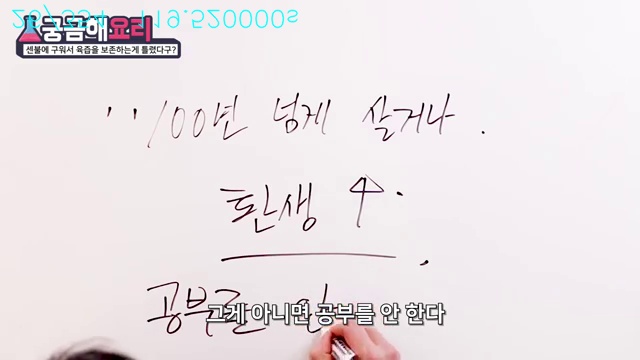 119.520000s
궁금해요리
센불에 구워서 육즙을 보존하는게 틀렸다구?
100년 넘게 살거나.
환생 ↑.
공부를 안
그게 아니면 공부를 안 한다